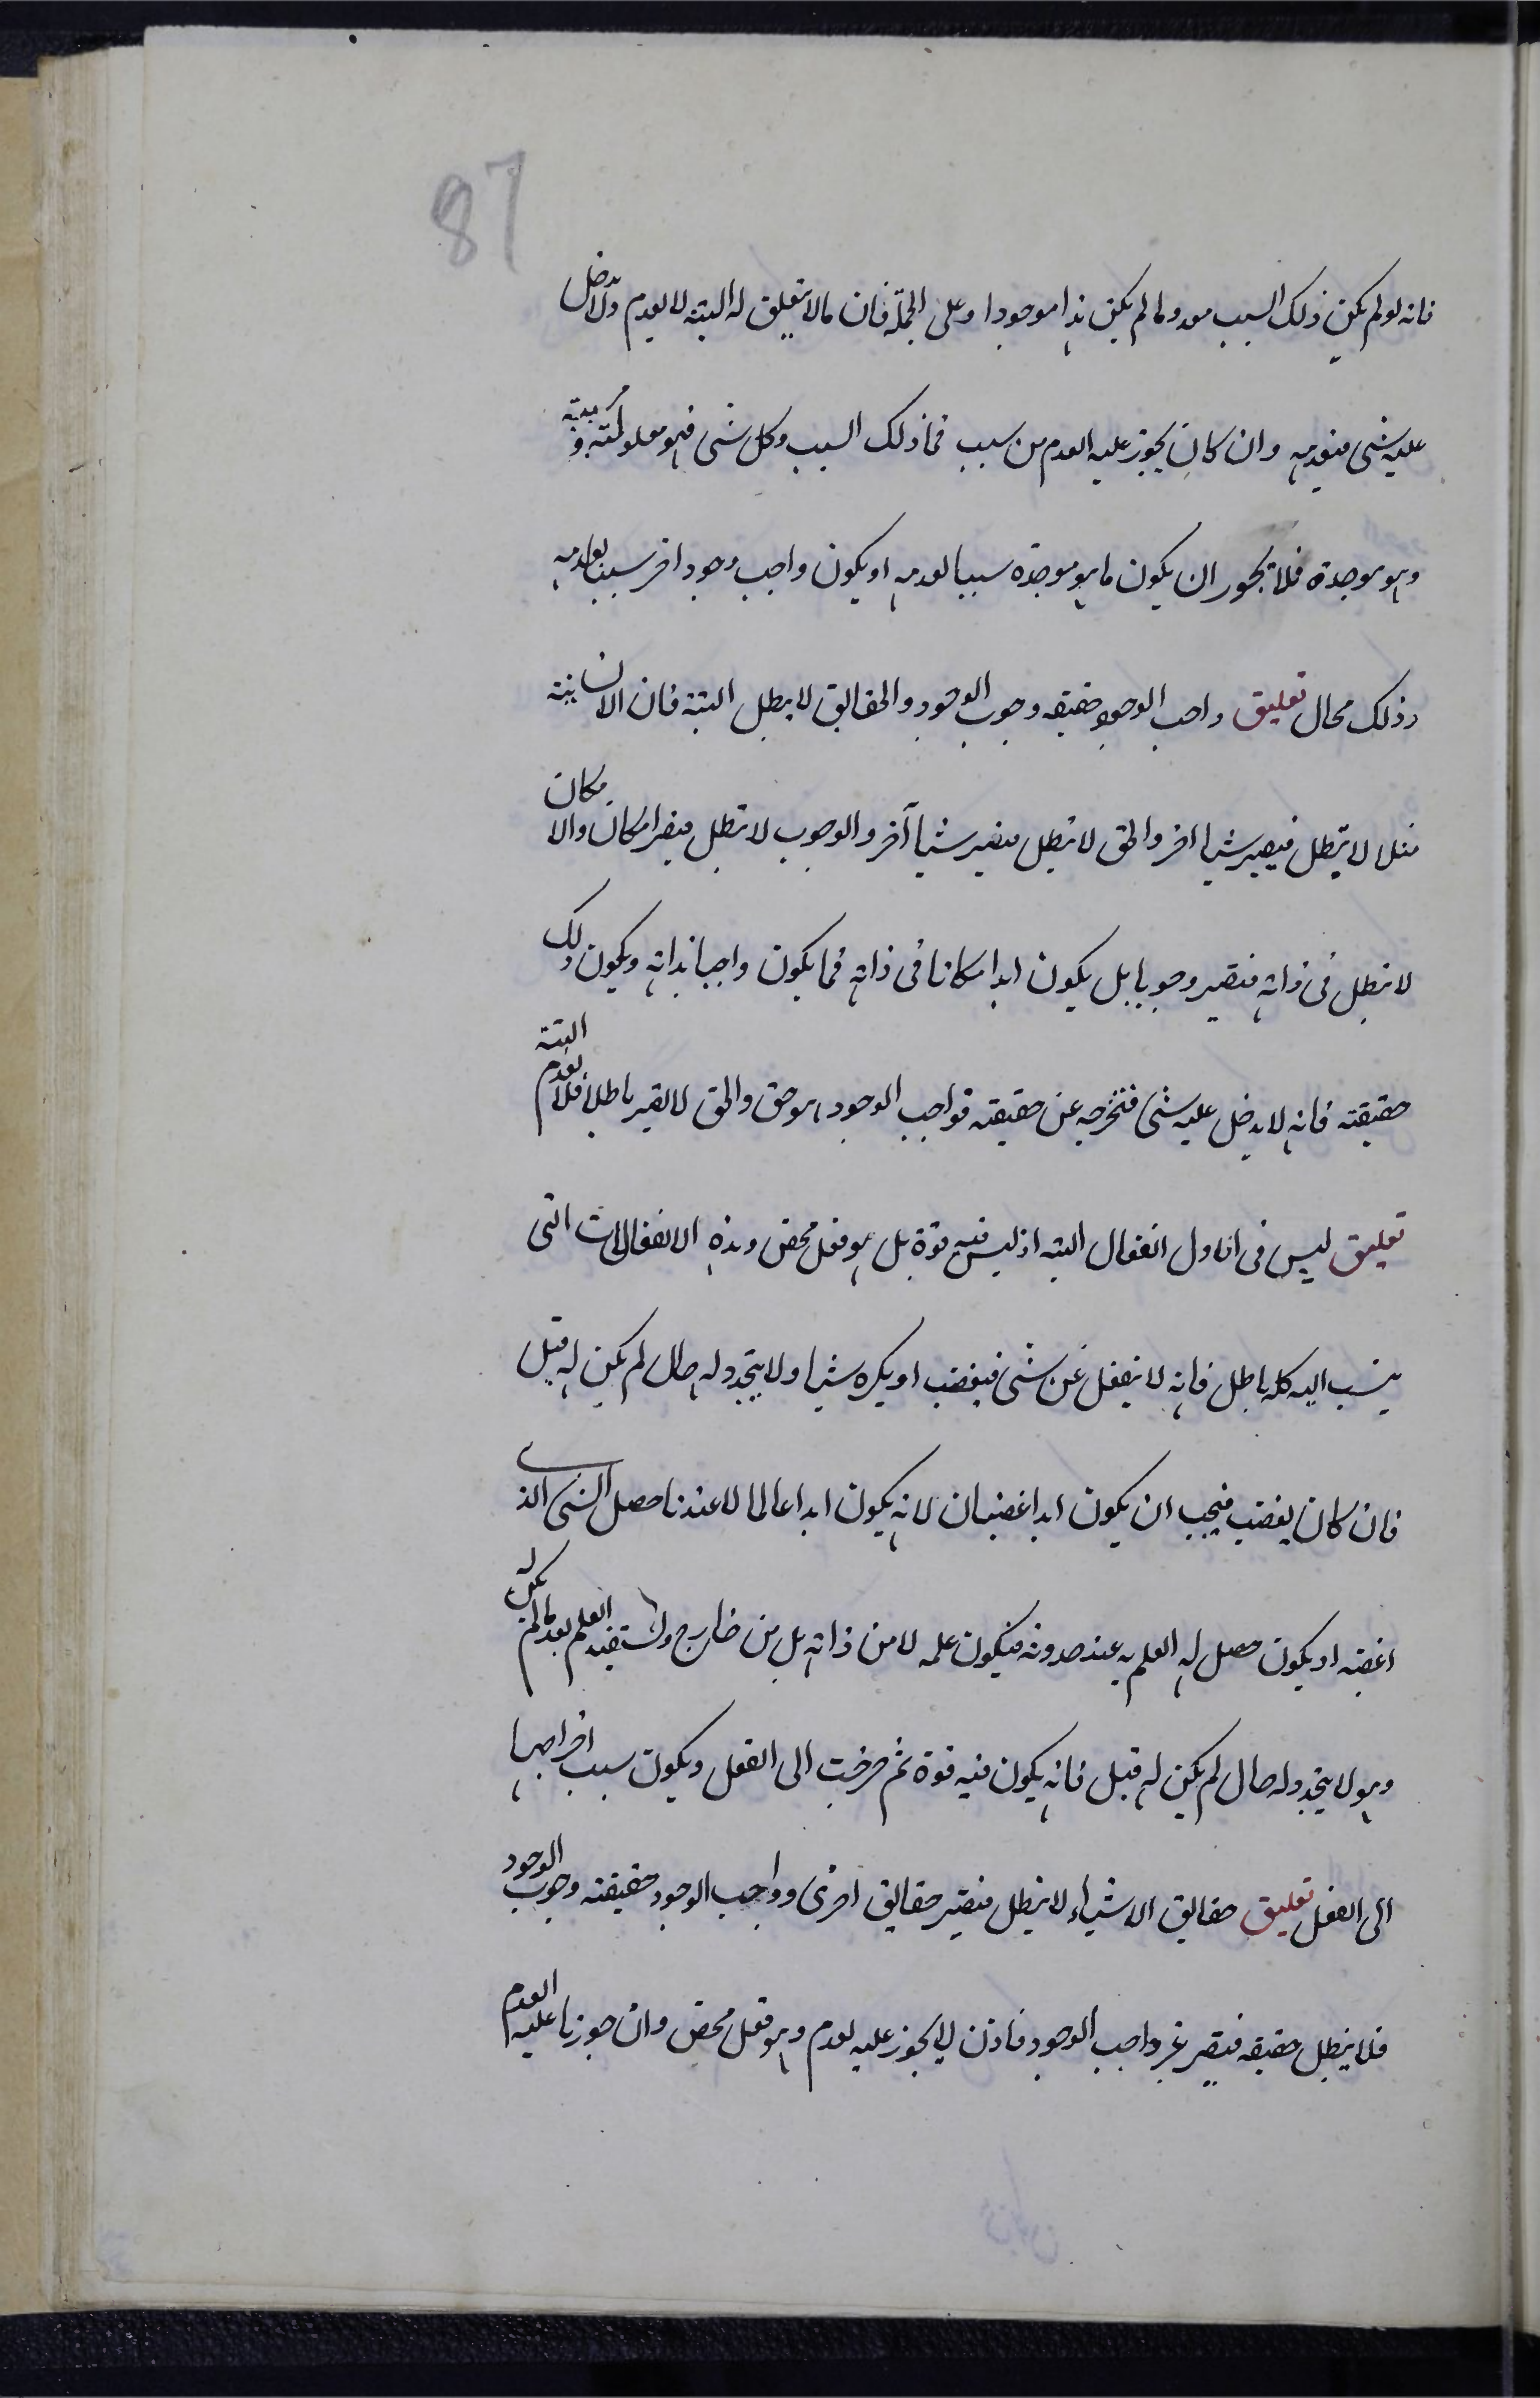 87
فانه لو لم يكن ذلك السبب معدوما لم يكن هذا موجودا وعلى الجملة فان ما لا يتعلق له البتة لا يعدم ولا يدخل
عليه شئ فيعدمه وان كان يجوز عليه العدم من سبب فما ذلك السبب وكل شئ فهو معلوله
وهو موجده فلا يجوز ان يكون ما هو موجده سببا لعدمه او يكون واجب وجود اخر سببا لعدمه
وذلك محال تعليق واجب الوجود حقيقته وجوب الوجود والحقايق لا يبطل البتة فان الانسانية
مثلا لا تبطل فيصير شيا اخر والحق لا تبطل فيصير شيا آخر والوجوب لا تبطل فيصير امكان والامكان
لا تبطل فى ذاته فيصير وجوبا بل يكون ابدا مكانا فى ذاته فما يكون واجبا بذاته ويكون ذلك
حقيقته فانه لا يدخل عليه شئ فتخرجه عن حقيقته فواجب الوجود هو حق والحق لا يصير باطلا فلا يعدم البتة
تعليق ليس فى الاول انفعال البتة اذ ليس فيه قوة بل هو فعل محض وهذه الانفعالات التى
ينسب اليه كله باطل فانه لا ينفعل عن شئ فيغضب او يكره شيا ولا يتجدد له حال لم يكن له قبل
فان كان يغضب فيجب ان يكون ابدا غضبان لانه يكون ابدا عالما لا عندنا حصل الشئ الذى
اغضبه او يكون حصل له العلم به عند حدوثه فيكون علمه لا من ذاته بل من خارج ولستفيد العلم بعد ما لم يكن له
وهو لا يتجدد له حال لم يكن له قبل فانه يكون فيه قوة ثم خرجت الى الفعل ويكون سبب اخراجها
الى الفعل تعليق حقايق الاشياء لا يبطل فيصير حقايق اخرى وواجب الوجود حقيقته وجوب الوجود
فلا يبطل حقيقه فيصير غير واجب الوجود فاذن لا يجوز عليه لعدم وهو فعل محض وان جوزنا عليه العدم